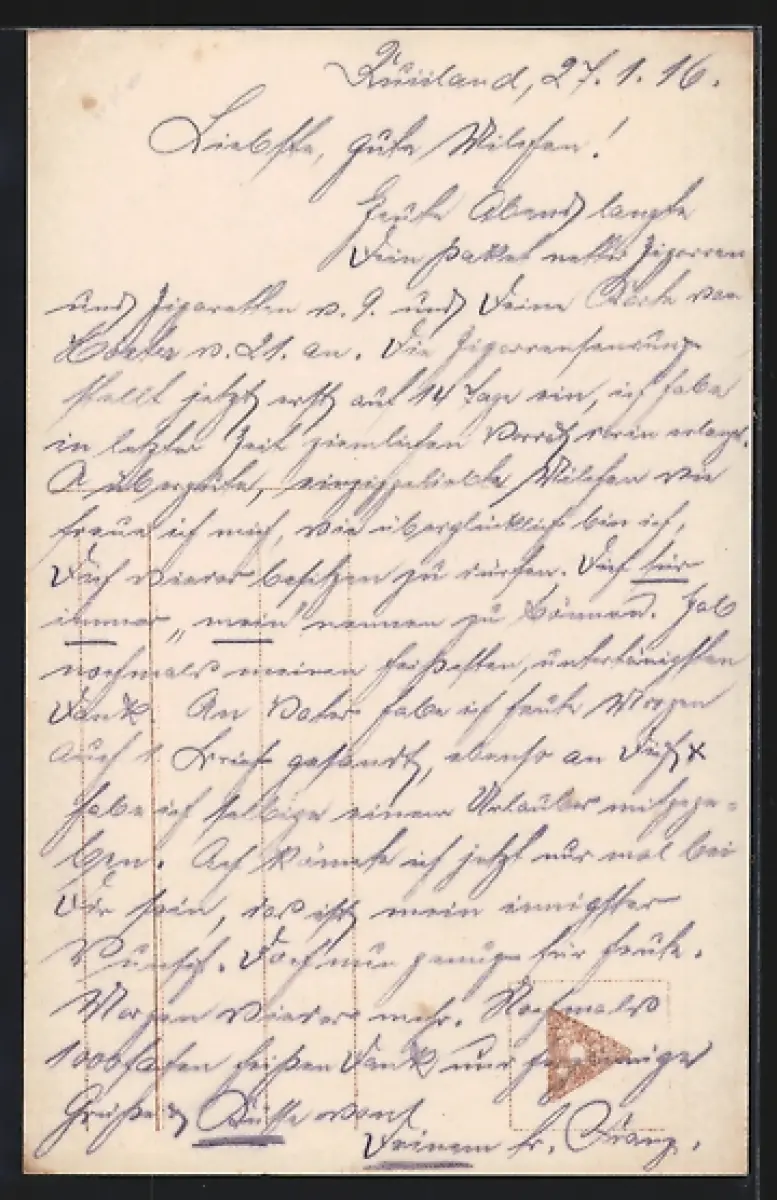 Russland, 27.1.16.
Liebste, gute Milchen!
Heute Abend langte
Dein Paket netter Zigarren
und Zigaretten v. 9. und Deine Karte von
v. 21. an. Die Zigarrensendung
stellt jetzt erst auf 14 Tage ein, ich habe
in letzter Zeit ziemlichen Vorrat darin erlangt.
O übergute, einziggeliebte Milchen wie
freue ich mich, wie überglücklich bin ich,
Dich wieder besitzen zu dürfen. Dich für
immer „mein" nennen zu können. Hab
nochmals meinen heißesten, untertänigsten
Dank. An Vater habe ich heute Morgen
auch 1 Brief gesandt, ebenso an Dich x
habe ich selbige einem Urlauber mitgege-
ben. Ach könnte ich jetzt nur mal bei
Dir sein, das ist mein innigster
Wunsch. Doch nun genug für heute.
Morgen wieder mehr. Nochmals
1000fachen heißen Dank und inniger
Grüße & Küsse von
Deinem tr. Franz.